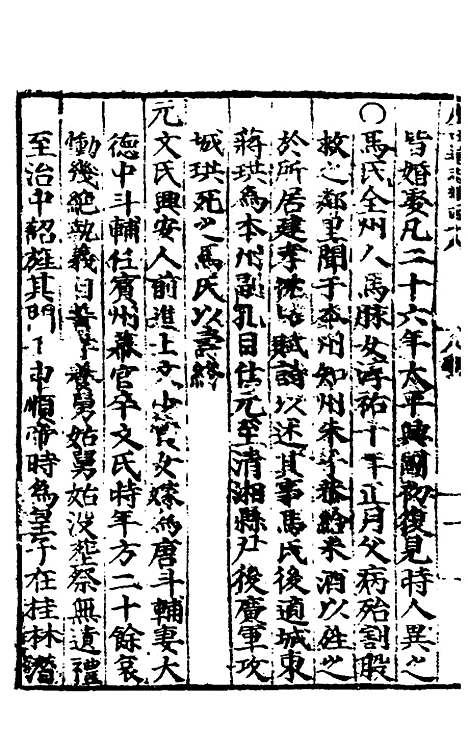 皆婚娶凡二十六年太平興國初復見時人異之
〇馬氏全州人馬脉女淳祐十年正月父病殆割股
救之鄰里聞于本州知州朱子恭給米酒以旌之
於所居建孝感坊賦詩以述其事馬氏後適城東
蔣珙為本州副孔目仕元至清湘縣尹後廣軍攻
城珙死之馬氏以壽終
元文氏興安人前進士文 女嫁為唐斗輔妻大
德中斗輔任賓州幕官卒文氏時年方二十餘哀
慟幾絕執義自誓孝養舅姑舅姑没塟祭無遺禮
至治中紹旌其門 申順帝時為皇子在桂林潛